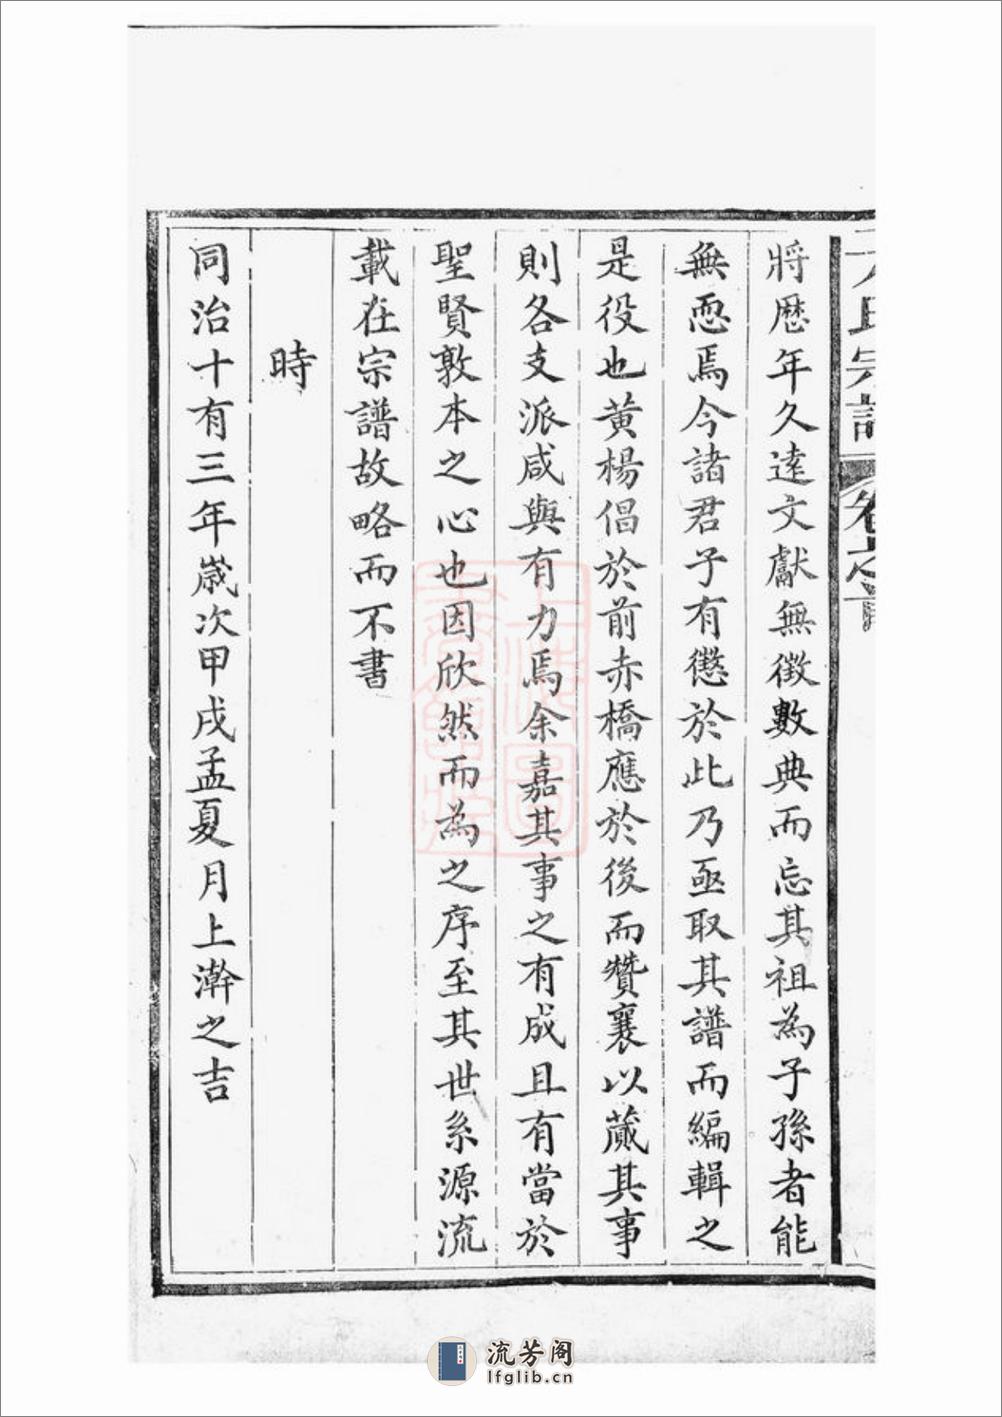 氏宗譜 卷之
將歷年久遠文獻無徵數典而忘其祖為子孫者能
無恧焉今諸君子有懲於此乃亟取其譜而編輯之
是役也黃楊倡於前赤橋應於後而贊襄以蕆其事
則各支派咸與有力焉余嘉其事之有成且有當於
聖賢敦本之心也因欣然而為之序至其世系源流
載在宗譜故略而不書
時
同治十有三年歲次甲戌孟夏月上澣之吉
上海圖
書館藏
流芳阁
lfglib.cn